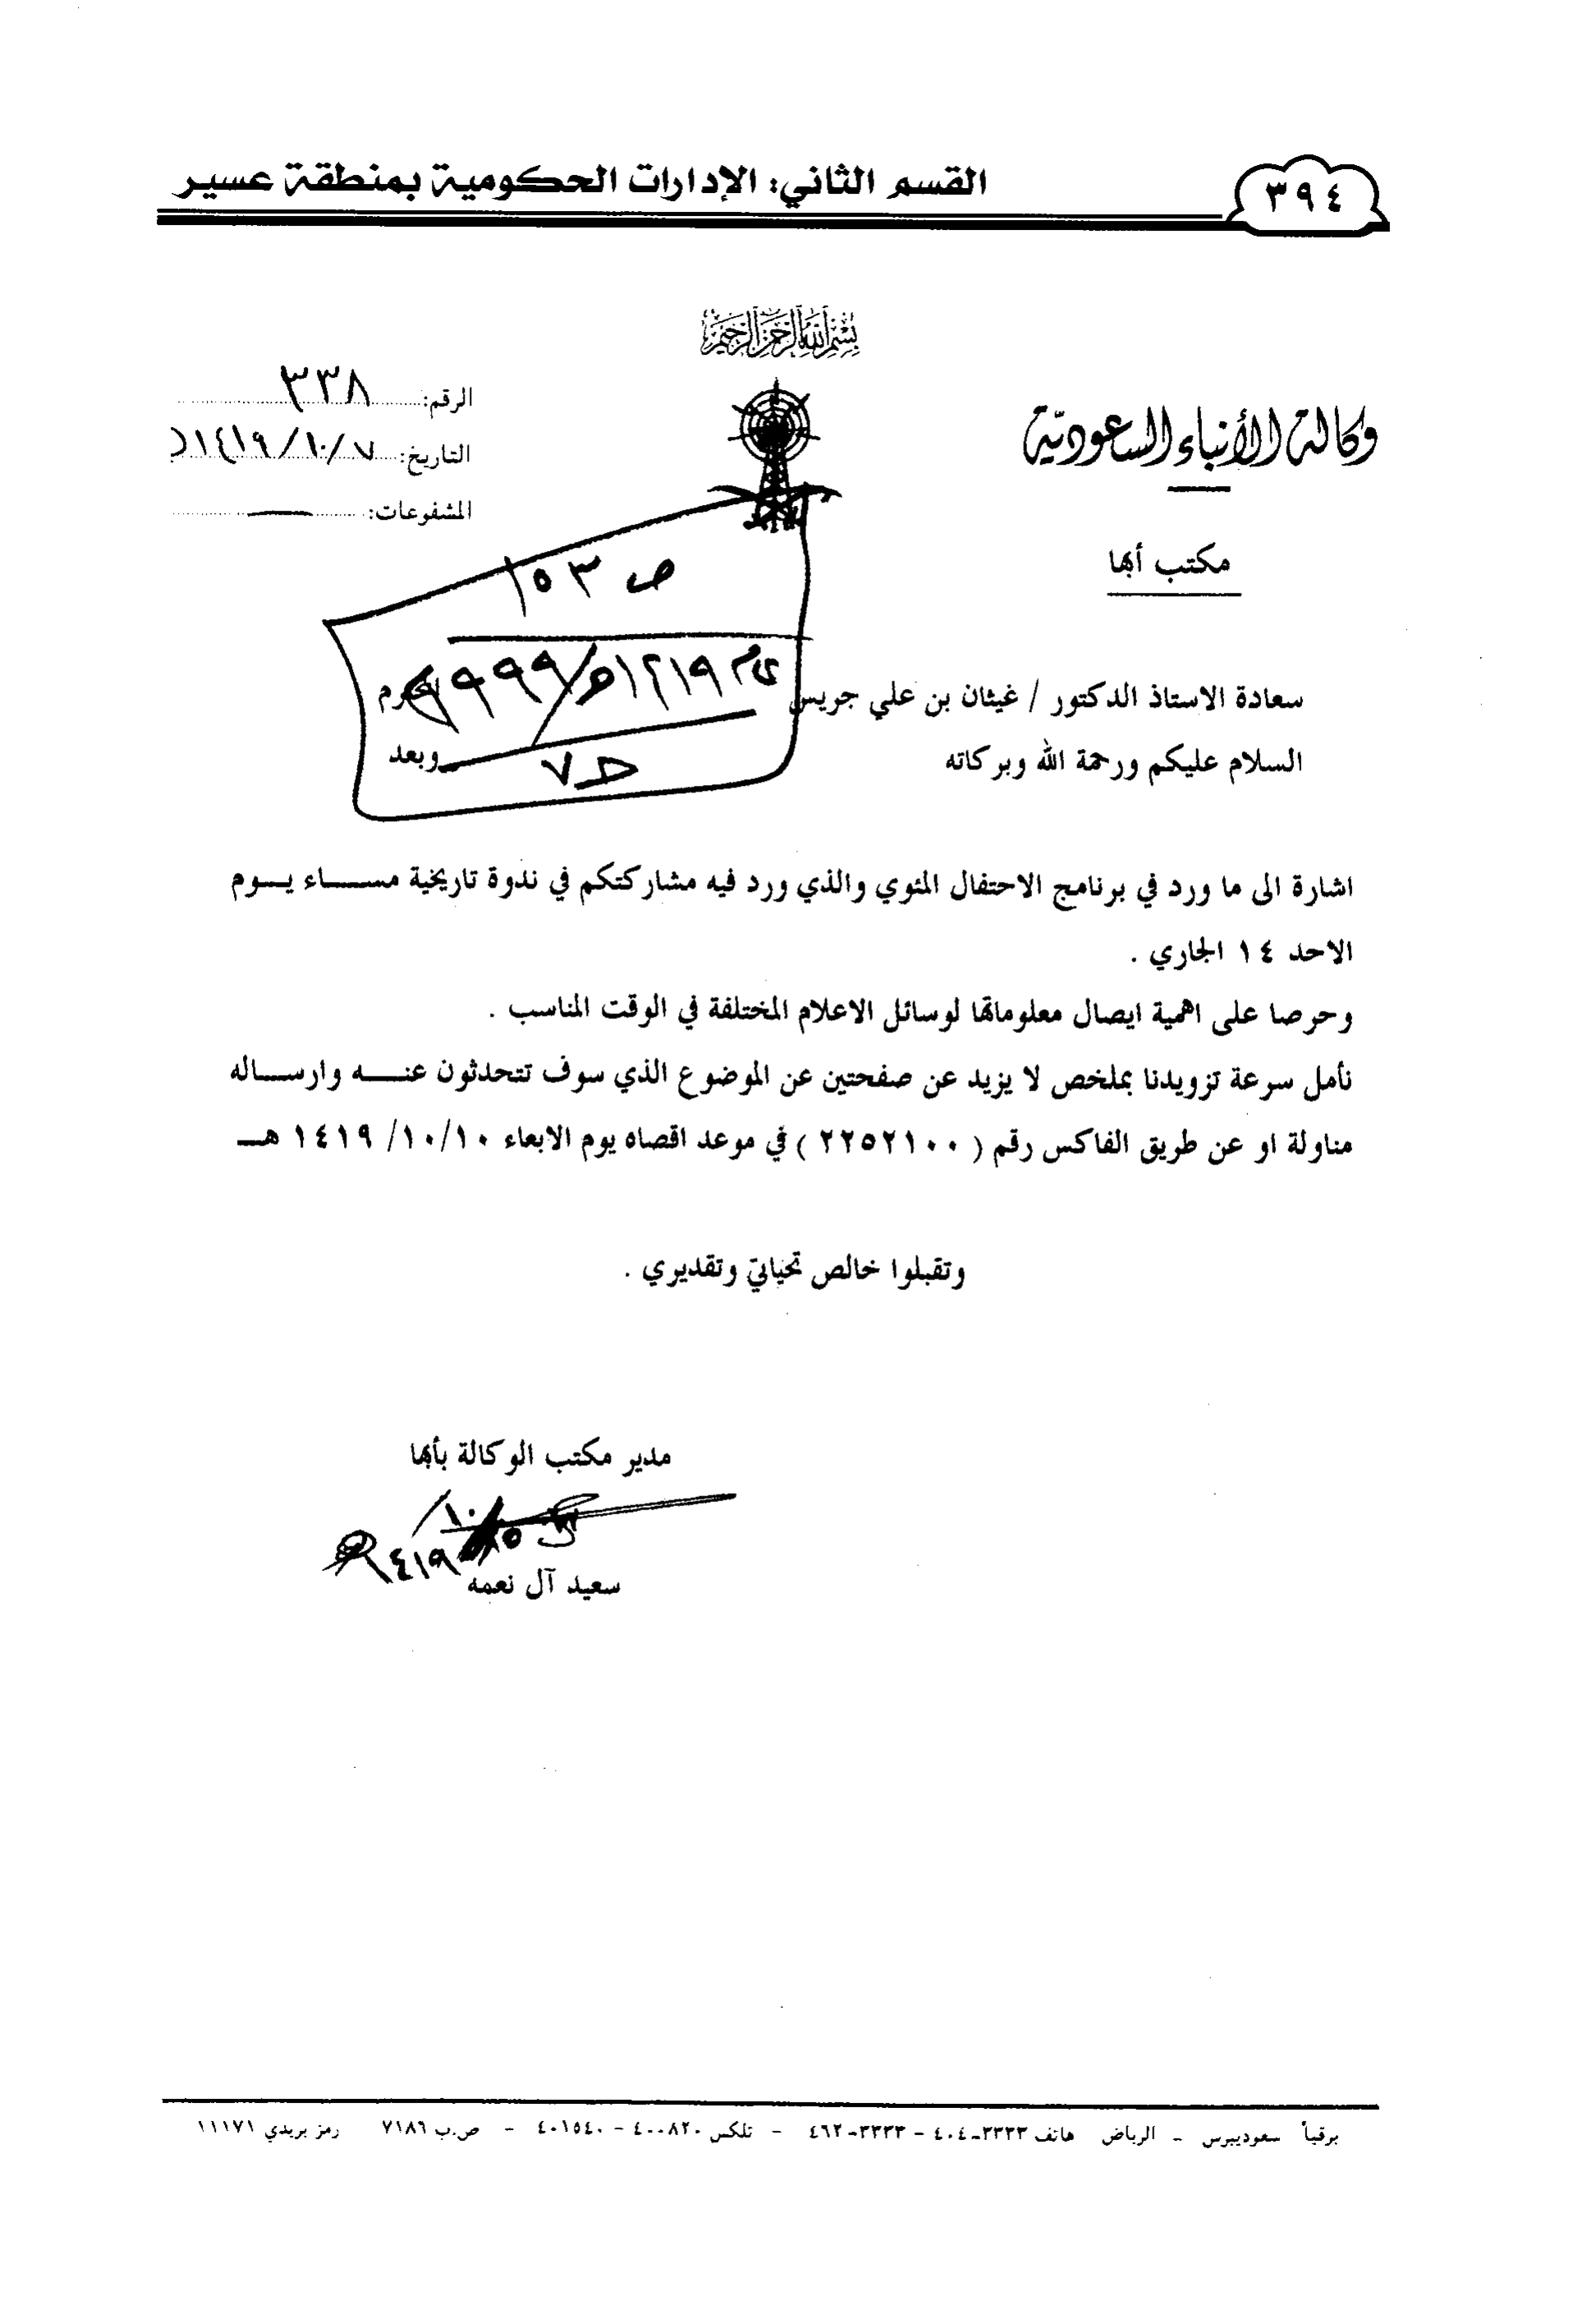 ٣٩٤
القسم الثاني: الإدارات الحكومية بمنطقة عسير
بسم الله الرحمن الرحيم
وكالة الأنباء السعودية
مكتب أبها
الرقم: ٣٣٨
التاريخ: ١٤١٩/١٠/٧
المشفوعات: ــ
ص ١٥٣
عام ١٤١٩هـ/١٩٩٩م
حـ ٧
سعادة الاستاذ الدكتور / غيثان بن علي جريس
السلام عليكم ورحمة الله وبركاته وبعد
اشارة الى ما ورد في برنامج الاحتفال المئوي والذي ورد فيه مشاركتكم في ندوة تاريخية مســـاء يـــوم
الاحد ١٤ الجاري .
وحرصا على اهمية ايصال معلوماتها لوسائل الاعلام المختلفة في الوقت المناسب .
نأمل سرعة تزويدنا بملخص لا يزيد عن صفحتين عن الموضوع الذي سوف تتحدثون عنـــه وارســـاله
مناولة او عن طريق الفاكس رقم ( ٢٢٥٢١٠٠ ) في موعد اقصاه يوم الابعاء ١٤١٩/١٠/١٠ هـــ
وتقبلوا خالص تحياتي وتقديري .
مدير مكتب الوكالة بأبها
سعيد آل نعمه
برقياً سعوديبرس - الرياض هاتف ٣٣٣٣-٤٠٤ - ٣٣٣٣-٤٦٢ - تلكس ٤٠٠٨٢٠ - ٤٠١٥٤٠ - ص.ب ٧١٨٦ رمز بريدي ١١١٧١